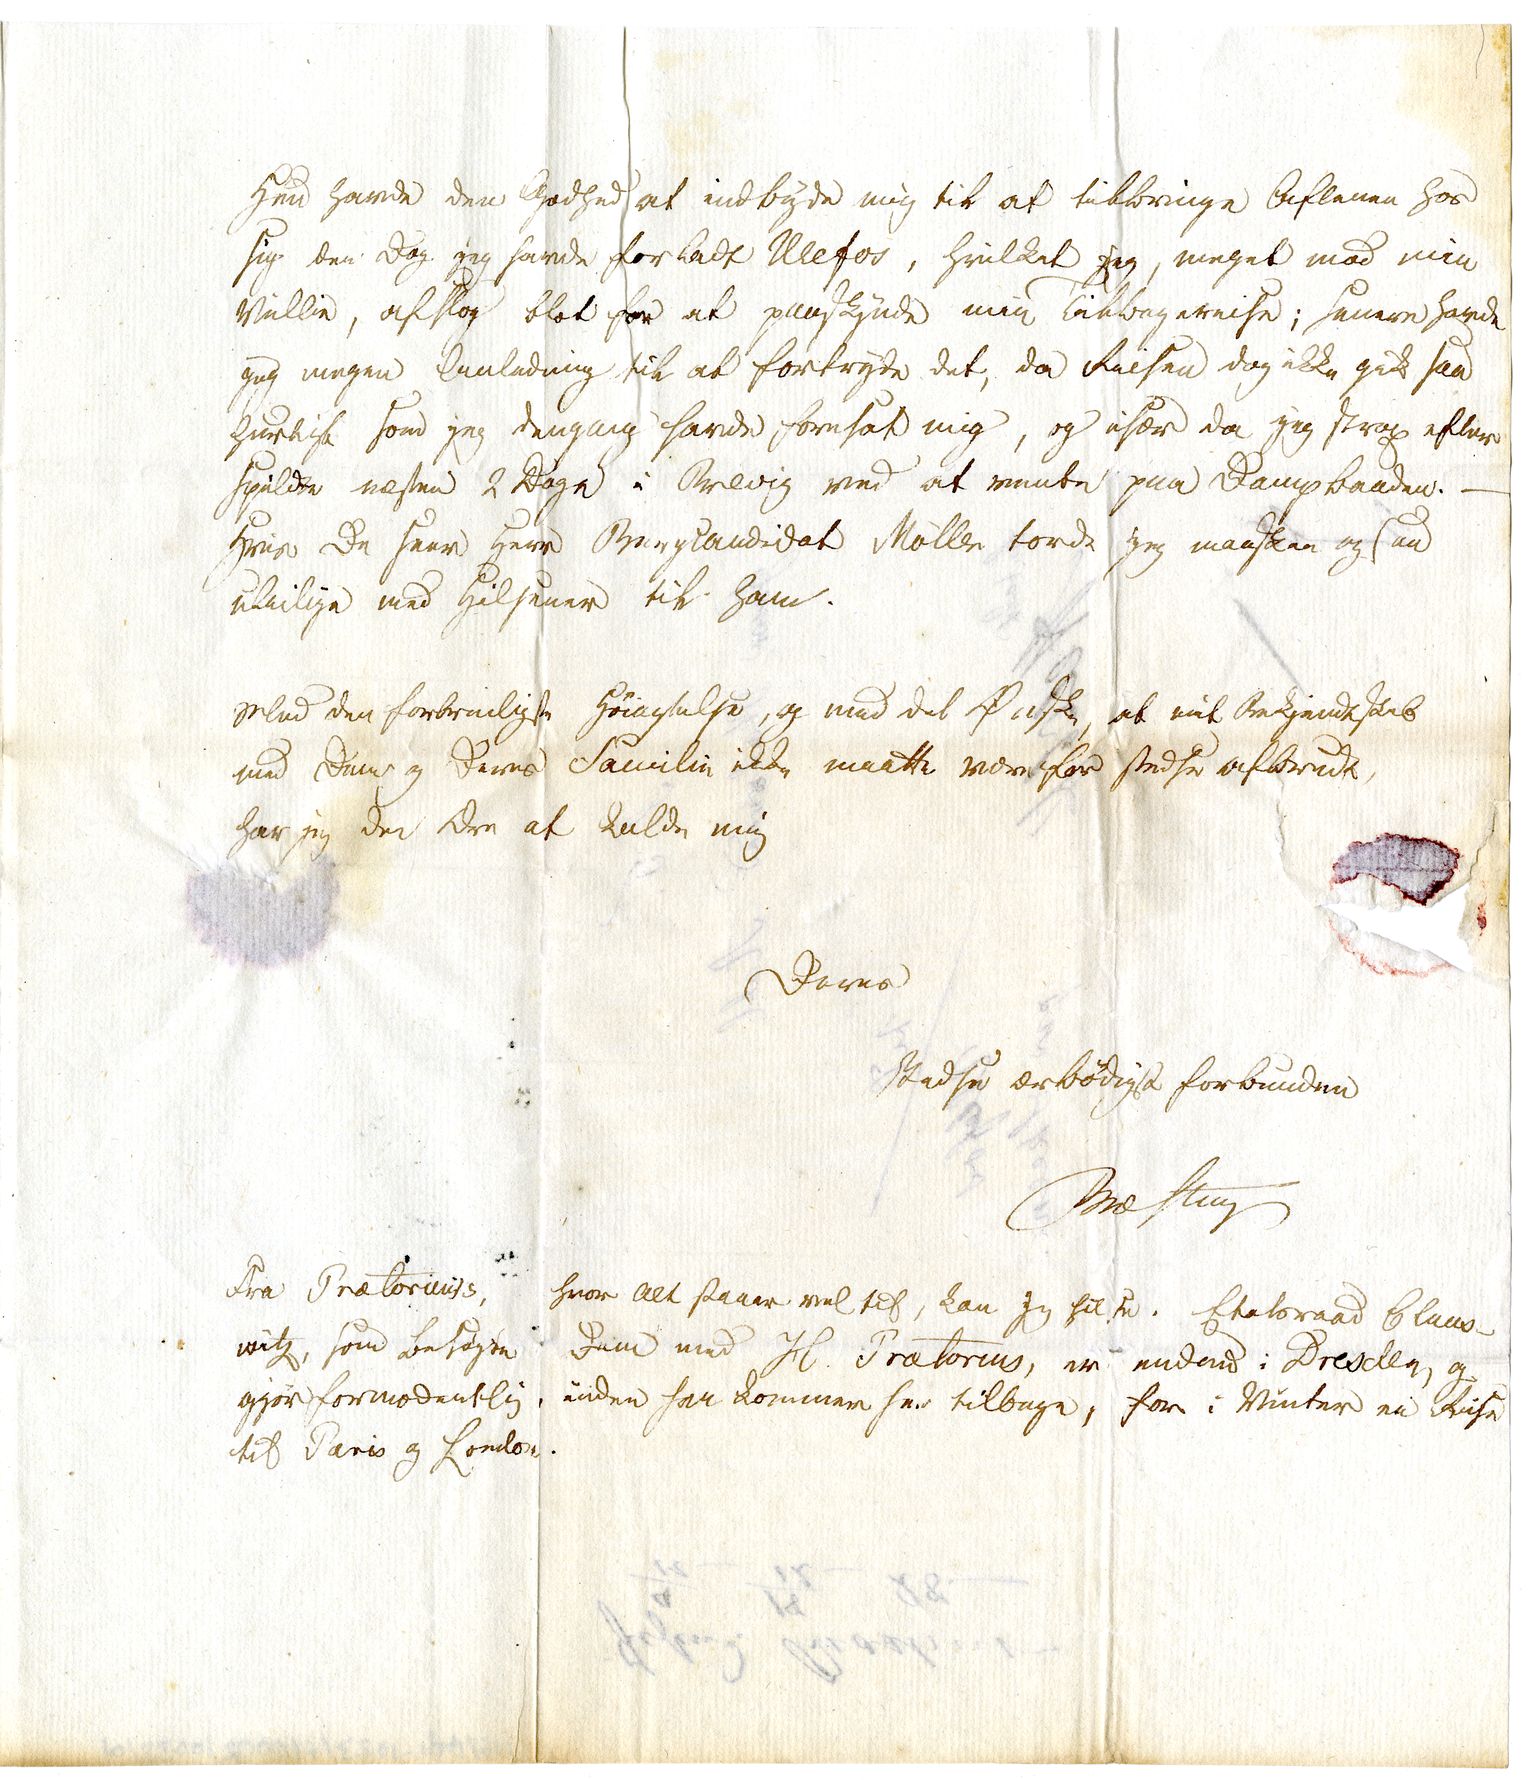 Hun havde den Godhed at indbyde mig til at tilbringe Aftenen hos
sig den Dag jeg havde forladt Ulefos, hvilket jeg, meget mod min
Villie, afslog blot for at paaskynde min Tilbagereise; senere havde
jeg megen Anledning til at fortryde det, da Reisen dog ikke gik saa
hurtigt som jeg dengang havde foresat mig, og især da jeg strax efter
spildte næsten 2 Dage i Brevig ved at vente paa Dampbaaden. —
Hvis De seer Herr Bergcandidat Møller torde jeg maaskee og saa
uleilige med Hilsener til ham.
Med den fortrinligste Høiagtelse, og med det Ønske, at mit Bekjendtskab
med Dem og Deres Familie ikke maatte være for stedse afbrudt,
har jeg den Ære at kalde mig
Deres
stedse ærbødigst forbunden
Fra Prætorius's, hvor Alt staaer vel til, kan jeg hilse. Etatsraad Claus-
witz, som besøgte Dem med H. Prætorius, er endnu i Dresden, og
gjør formodentlig, inden han kommer her tilbage, før i Vinter en Reise
til Paris og London.